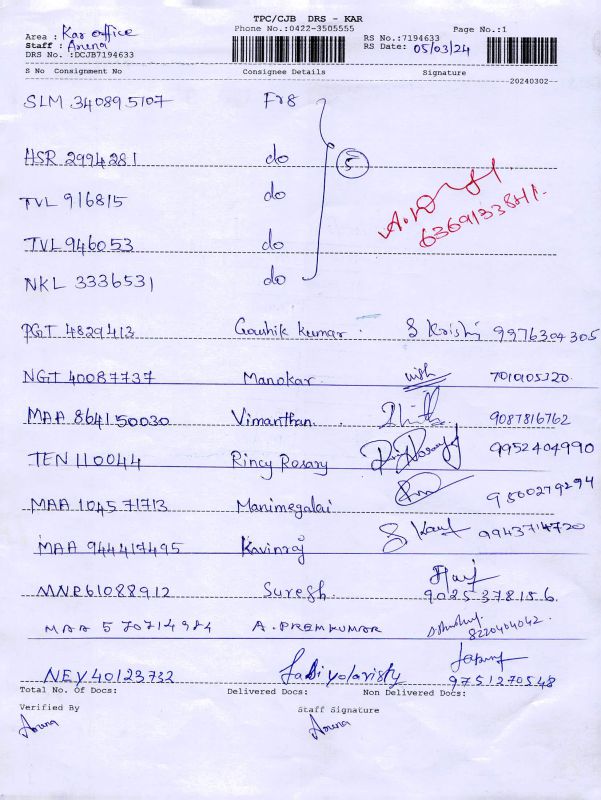 TPC/CJB DRS - KAR
Phone No.:0422-3505555 Page No.:1
Area : Kar office RS No.:7194633
Staff : Aruna RS Date: 05/03/24
DRS No. :DCJB7194633
S No Consignment No Consignee Details Signature
20240302
SLM 340895107 Fr8
HSR 2994281 do 5
TVL 916815 do
6369133841
TVL 946053 do
NKL 3336531 do
PGT 4829413 Goushik kumar. S Krishi 9976304305
NGT 40087737 Manokar 7010105320
MAA 864150030 Vimanthan. 9087816762
TEN 110044 Rincy Rosary 9952404990
MAA 104571713 Manimegalai 9500279294
MAA 944417495 Kavinraj 9943714720
MNR61088912 Suresh 9025378156
MAA 570714984 A. PREMKUMAR 8220404042
NEY 40123732 9751270548
Total No. Of Docs: Delivered Docs: Non Delivered Docs:
Verified By Staff Signature
Aruna Aruna